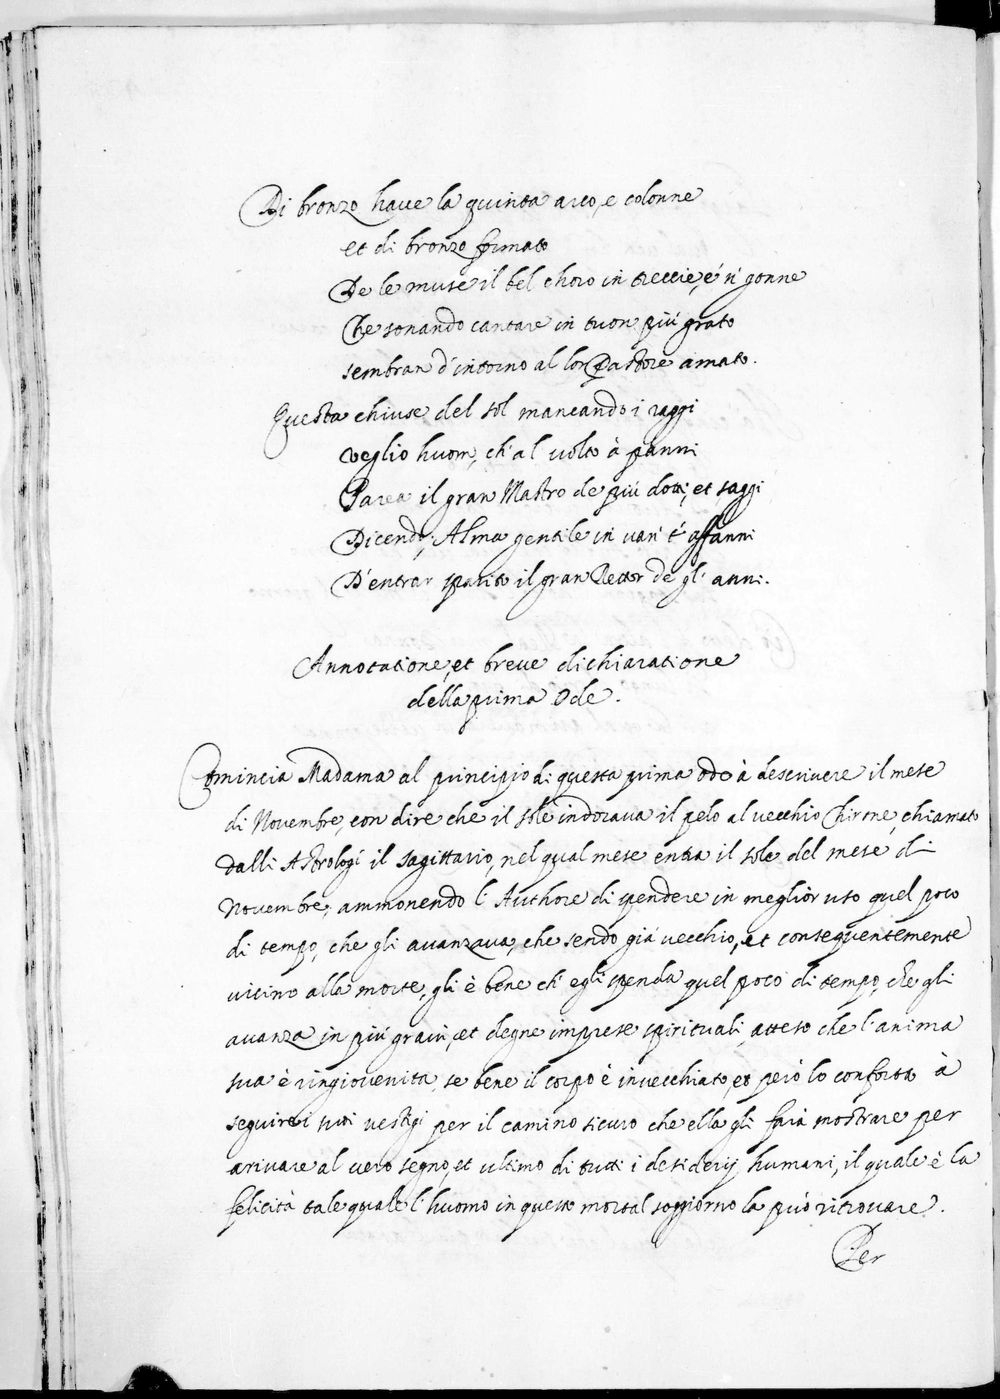 Di bronzo haue la quinta arco, e colonne
et di bronzo formato
De le muse il bel choro in treccie, é 'n gonne
Che sonando cantare in tuon piú grato
sembran d'intorno al lor Pastore amato.
Questa chiuse del sol mancando i raggi
veglio huom, ch'al volto à panni
Parea il gran Mastro de piú dotti, et saggi
Dicendo; Alma gentile in van t'affanni
D'entrar sparito il gran Rettor de gl'anni.
Annotatione, et breue dichiaratione
della prima Ode.
Comincia Madama al principio di questa prima ode à descriuere il mese
di Nouembre, con dire che il sole indoraua il pelo al vecchio Chirone, chiamato
dalli Astrologi il sagittario, nel qual mese entra il sole del mese di
Nouembre, ammonendo l'Authore di spendere in meglior uso quel poco
di tempo, che gli auanzaua, che sendo giá vecchio, et consequentemente
uicino alla morte, gli è bene ch'egli spenda quel poco di tempo, che gli
auanza in piú graui, et degne imprese spirituali, atteso che l'anima
sua è ringiouenita, se bene il corpo è inuecchiato, et peró lo conforta à
seguire i suoi vestigi per il camino sicuro che ella gli fará mostrare per
ariuare al vero segno, et ultimo di tutti i desiderij humani, il quale è la
felicità tale quale l'huomo in questo mortal soggiorno la puó ritrouare.
Per